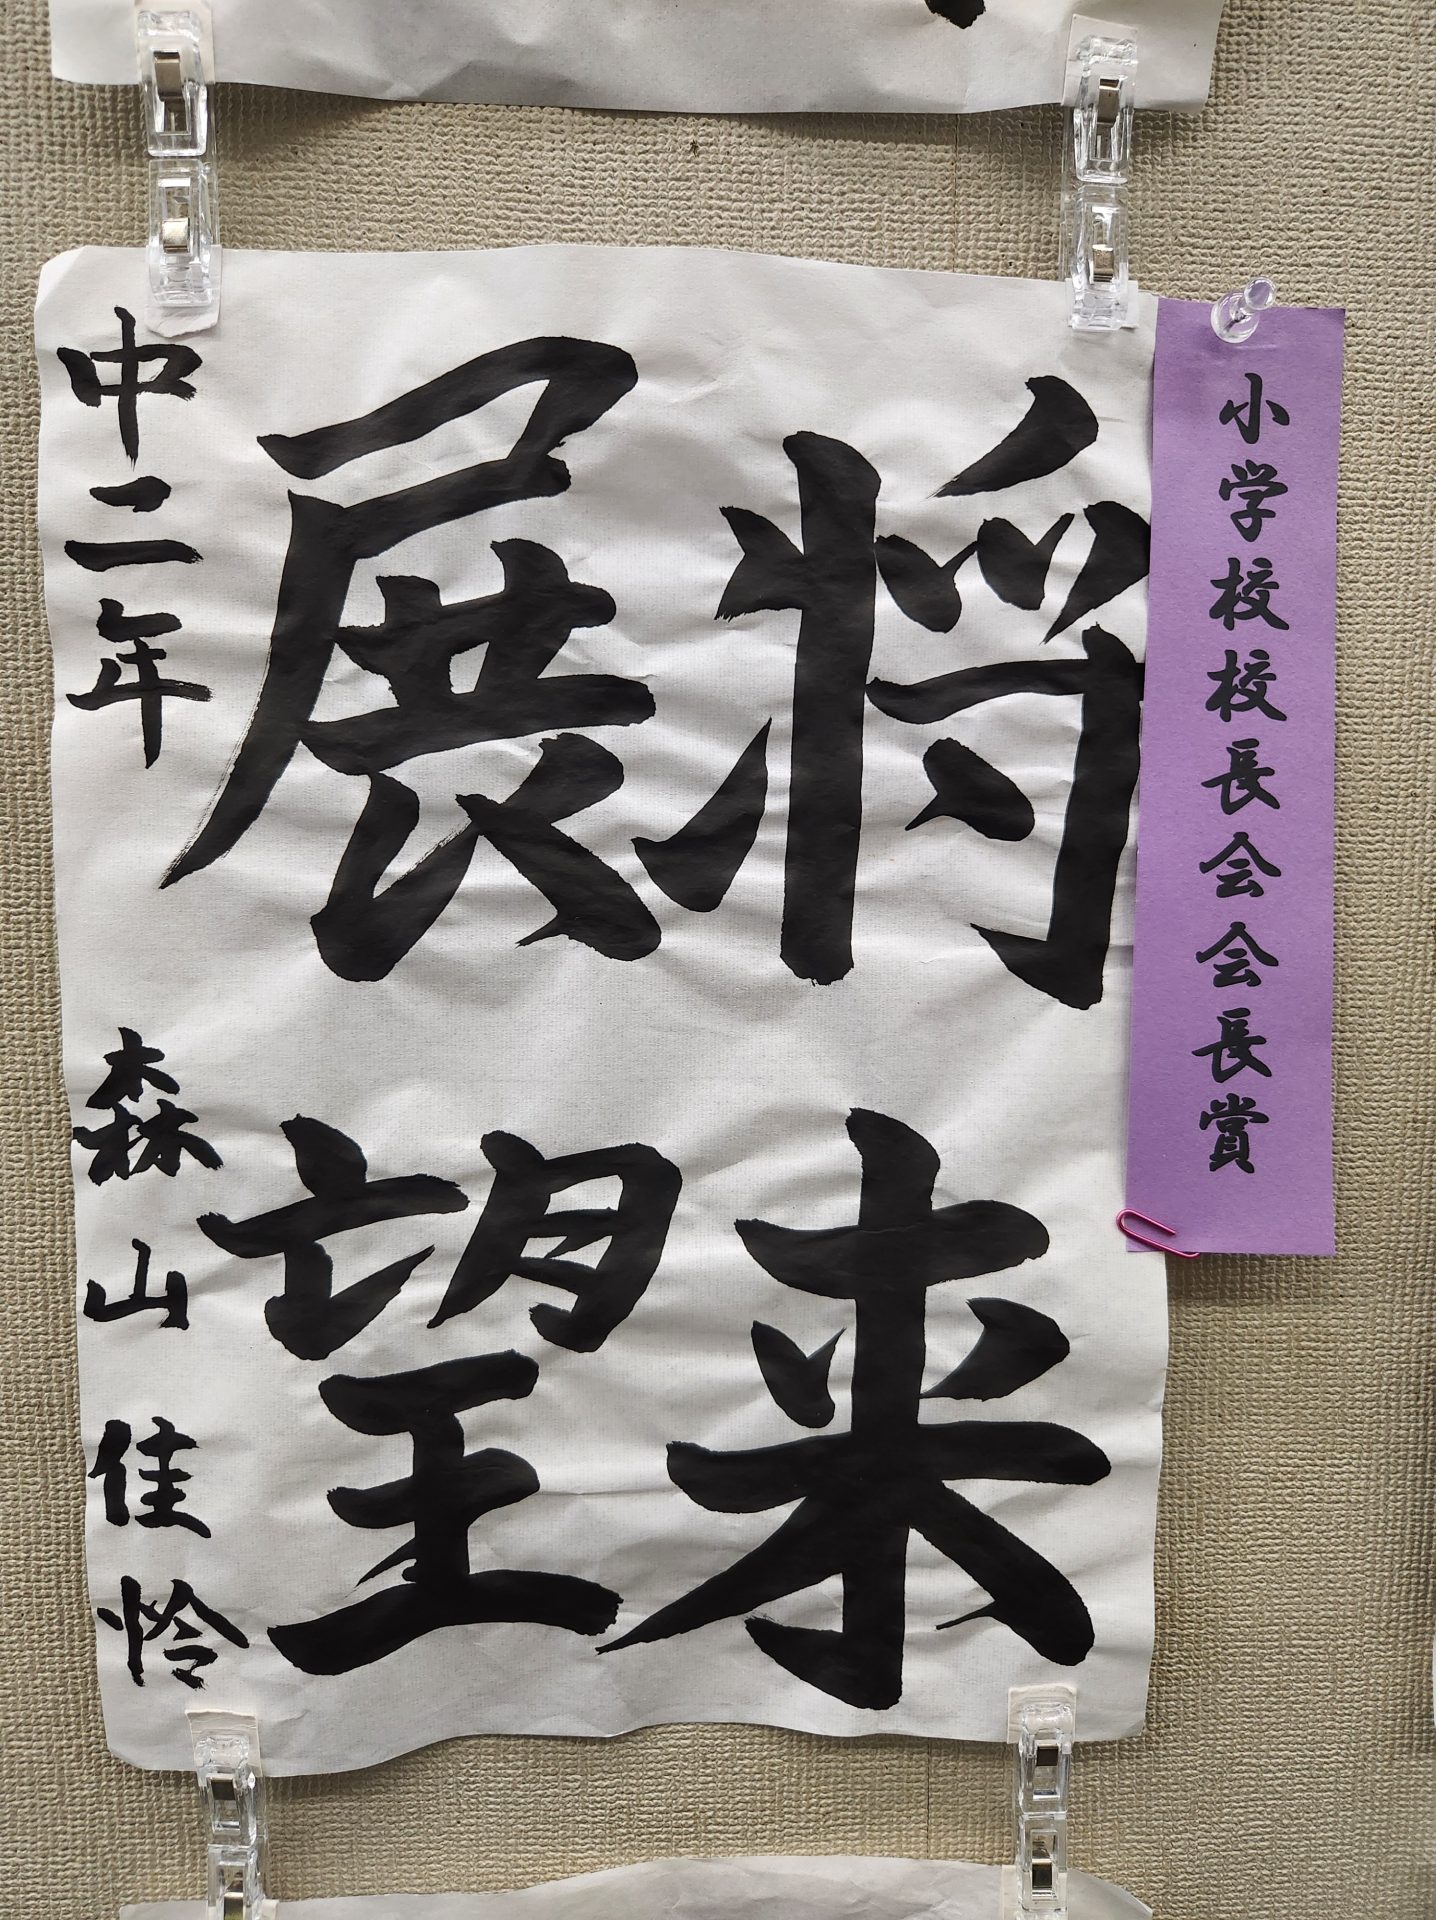 小学校校長会会長賞
将来
展望
中二年 森山佳怜